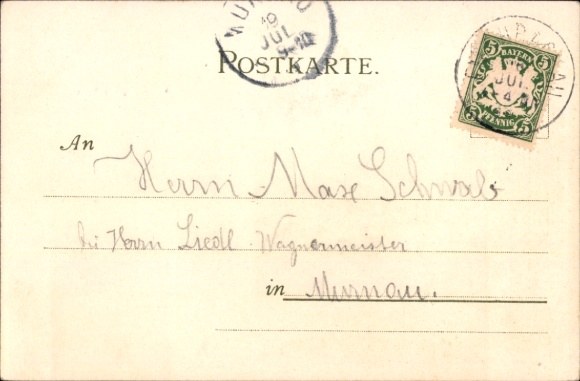 MURNAU
9
JUL
POSTKARTE.
5 BAYERN 5
JUL
4
5 PFENNIG 5
An
Herrn Max Schwab
bei Herrn Liedl Wagnermeister
in Murnau.